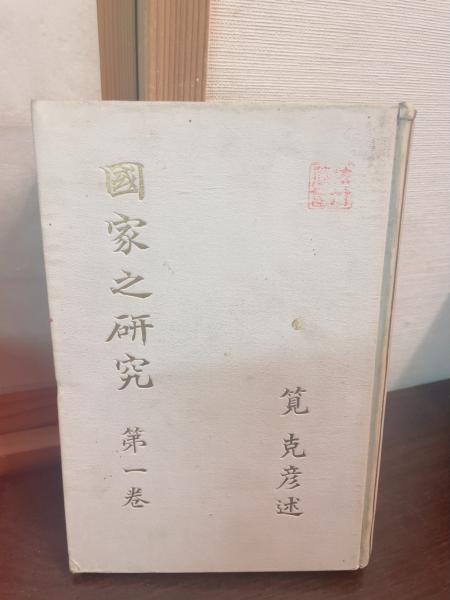 國家之研究 第一卷
筧 克彦述